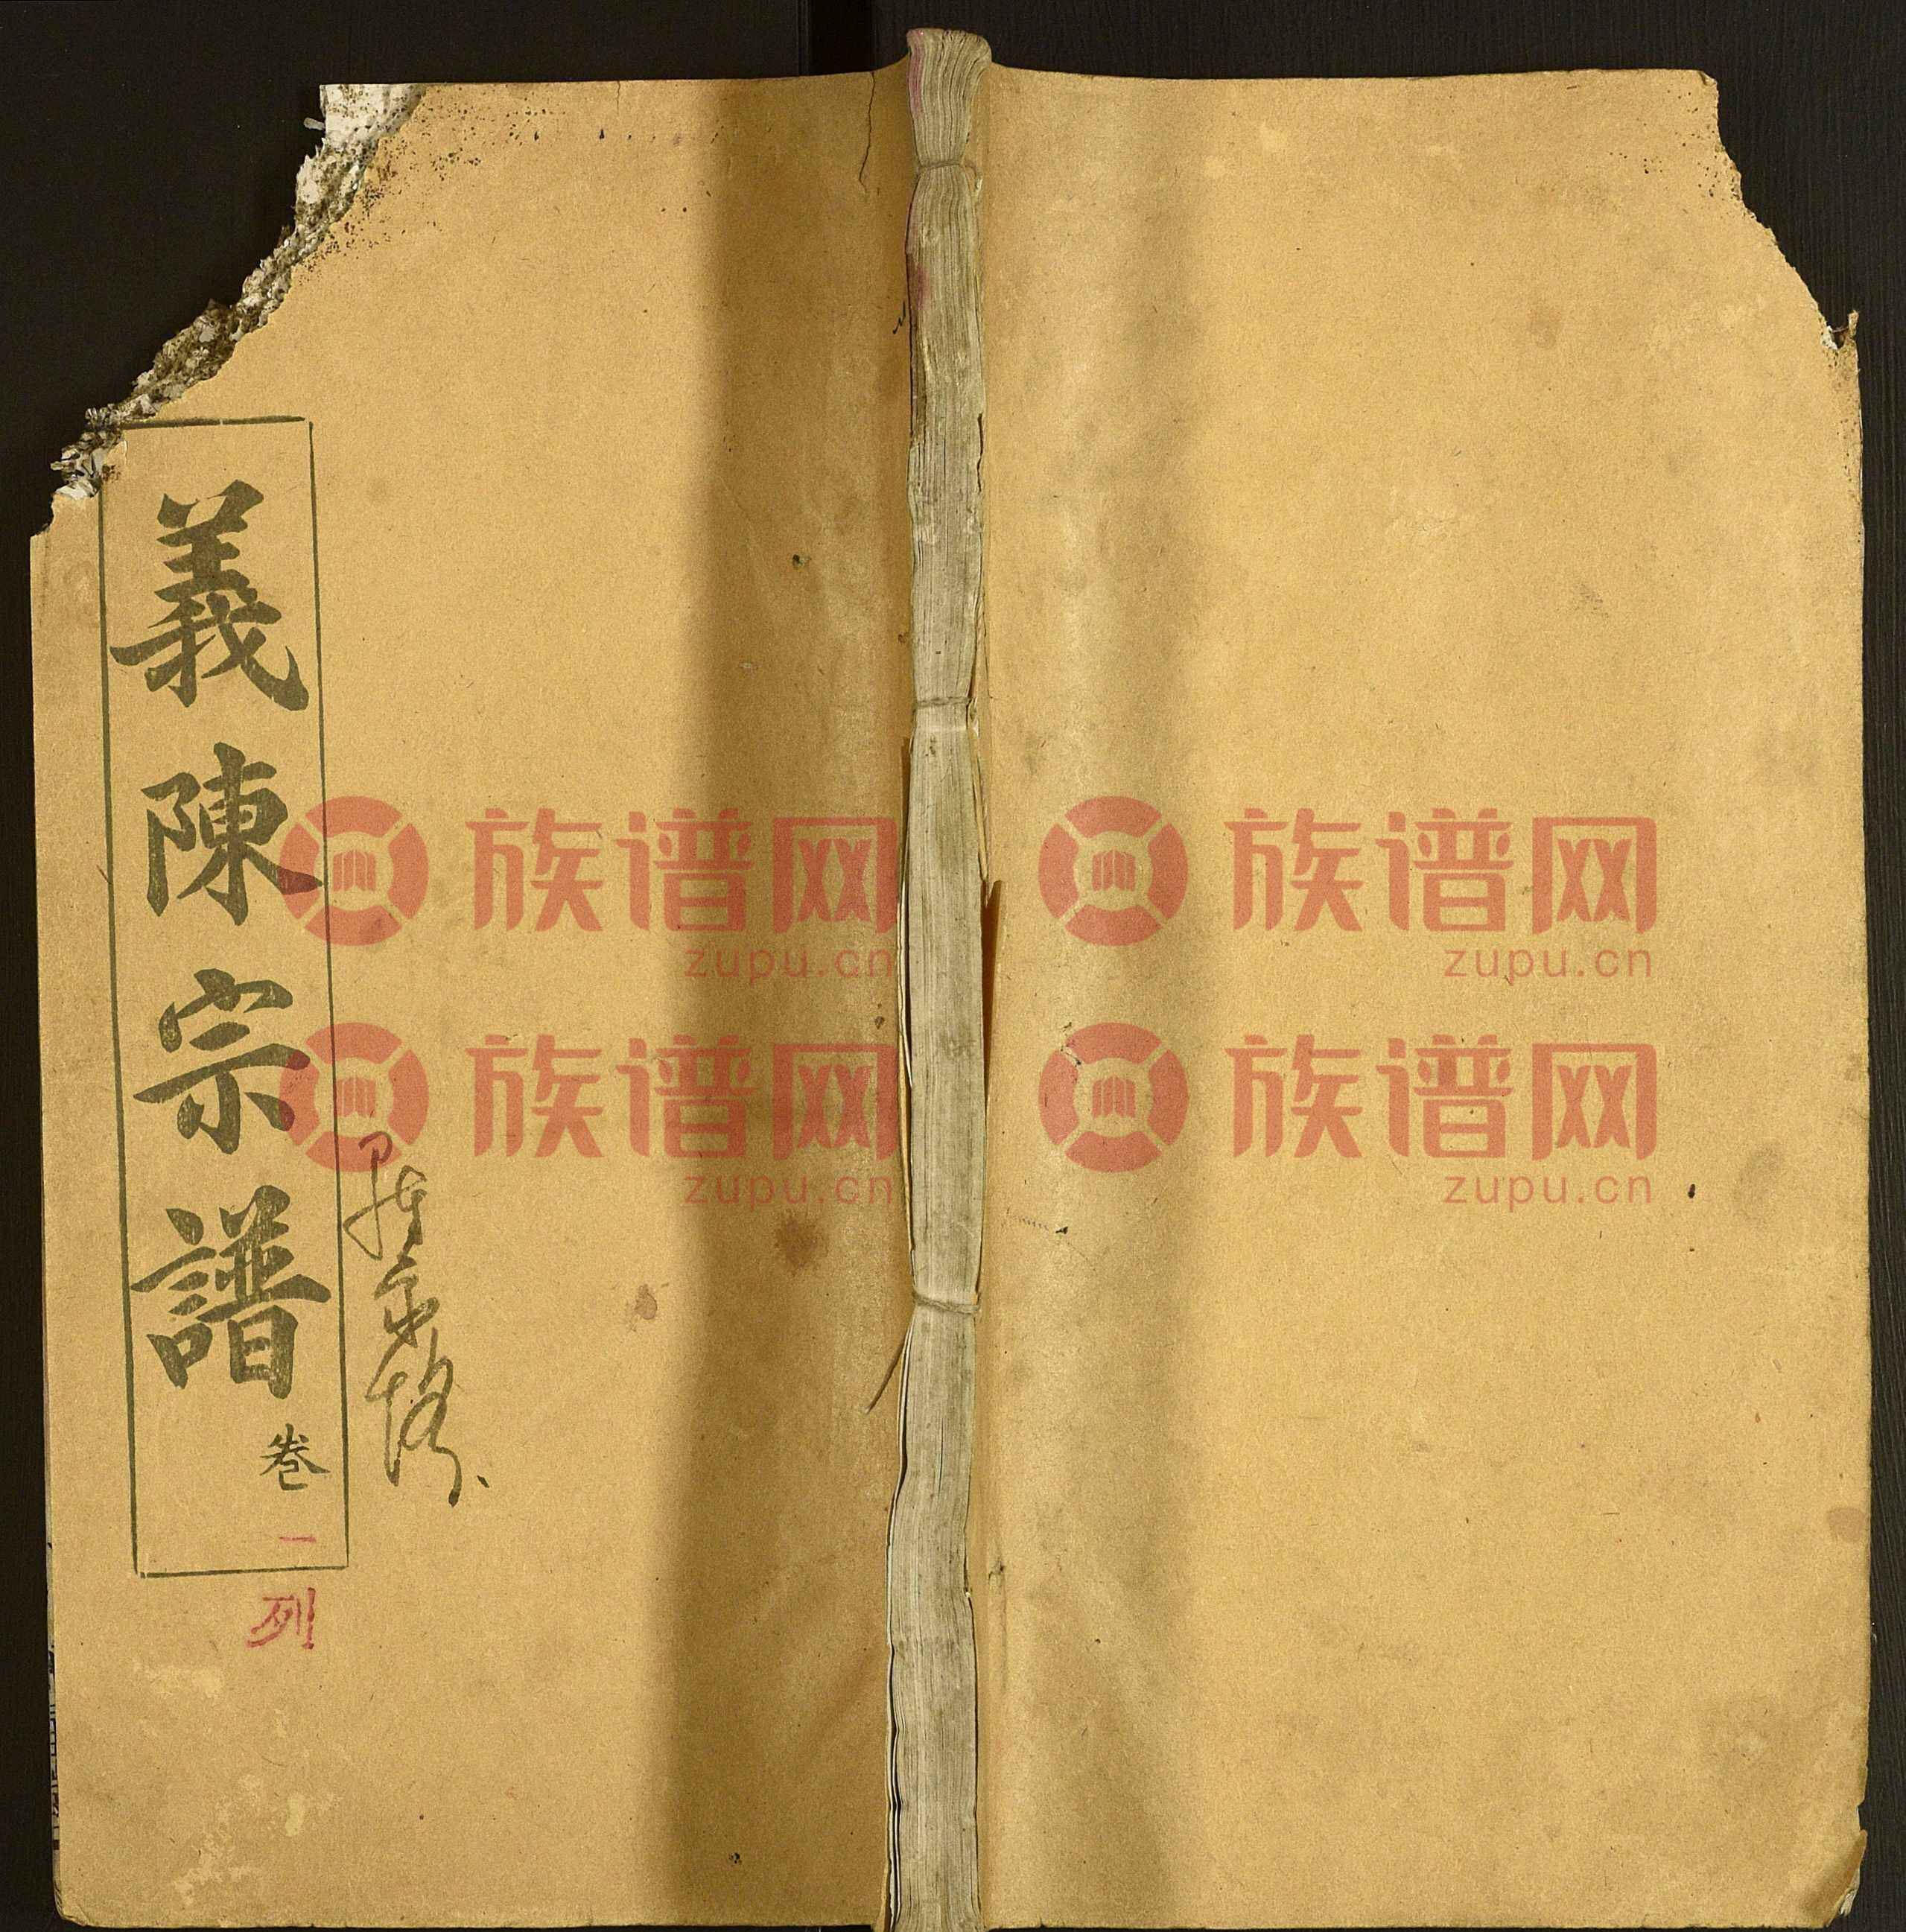 義陳宗譜
卷一
列
族谱网 族谱网
zupu.cn zupu.cn
族谱网 族谱网
zupu.cn zupu.cn